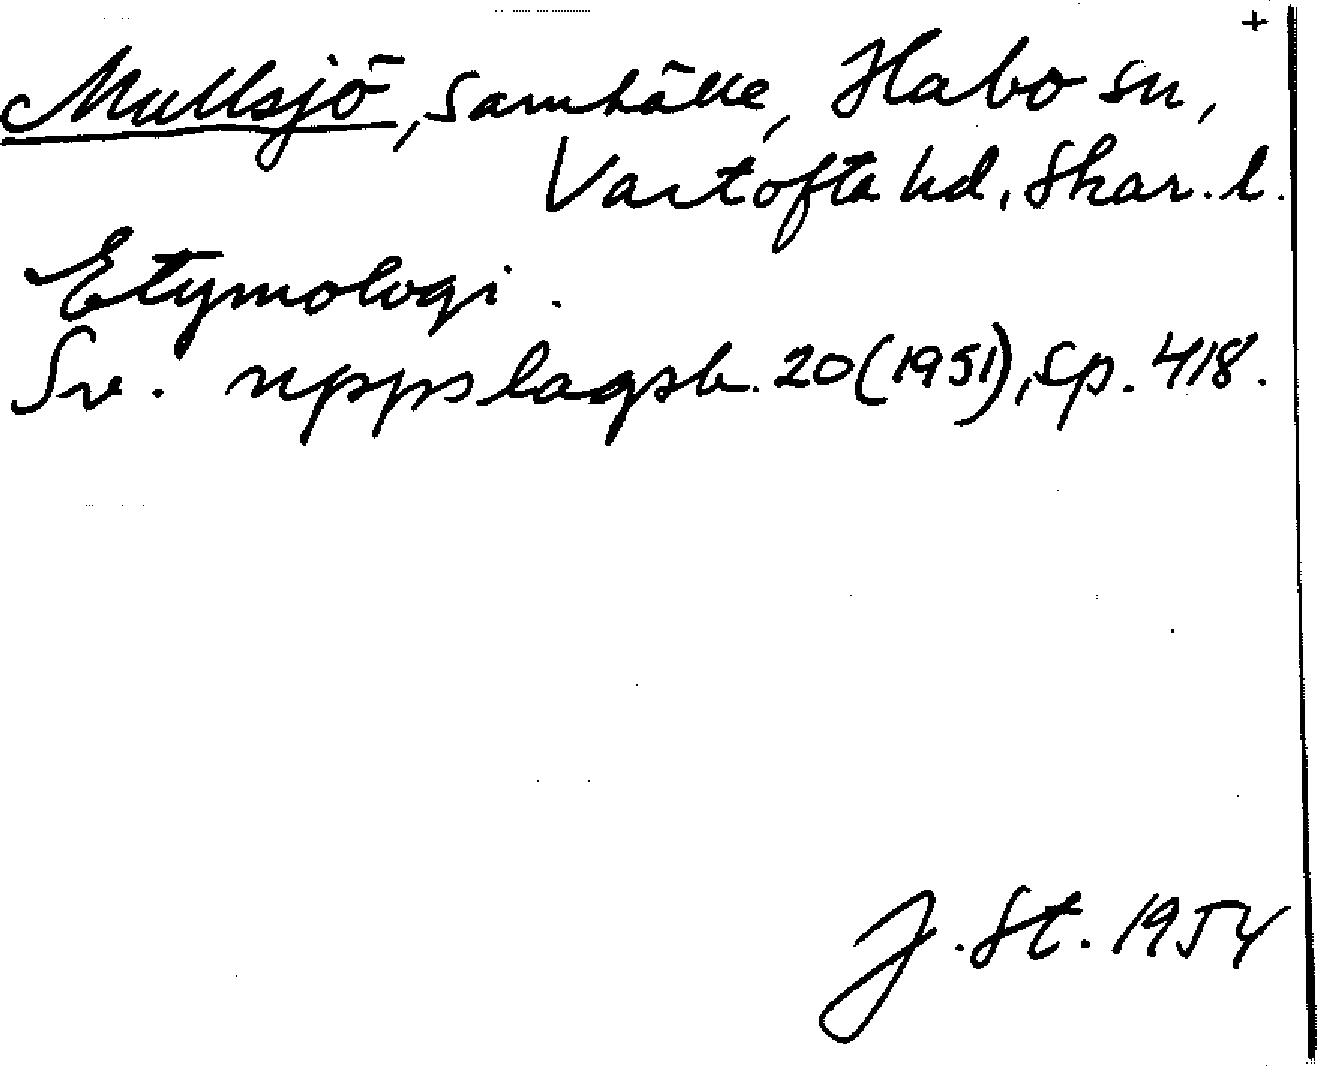 +
Mullsjö, samhälle, Habo sn,
Vartofta hd, Skar. l.
Etymologi.
Sv. uppslagsb. 20 (1951), sp. 418.
J. St. 1954